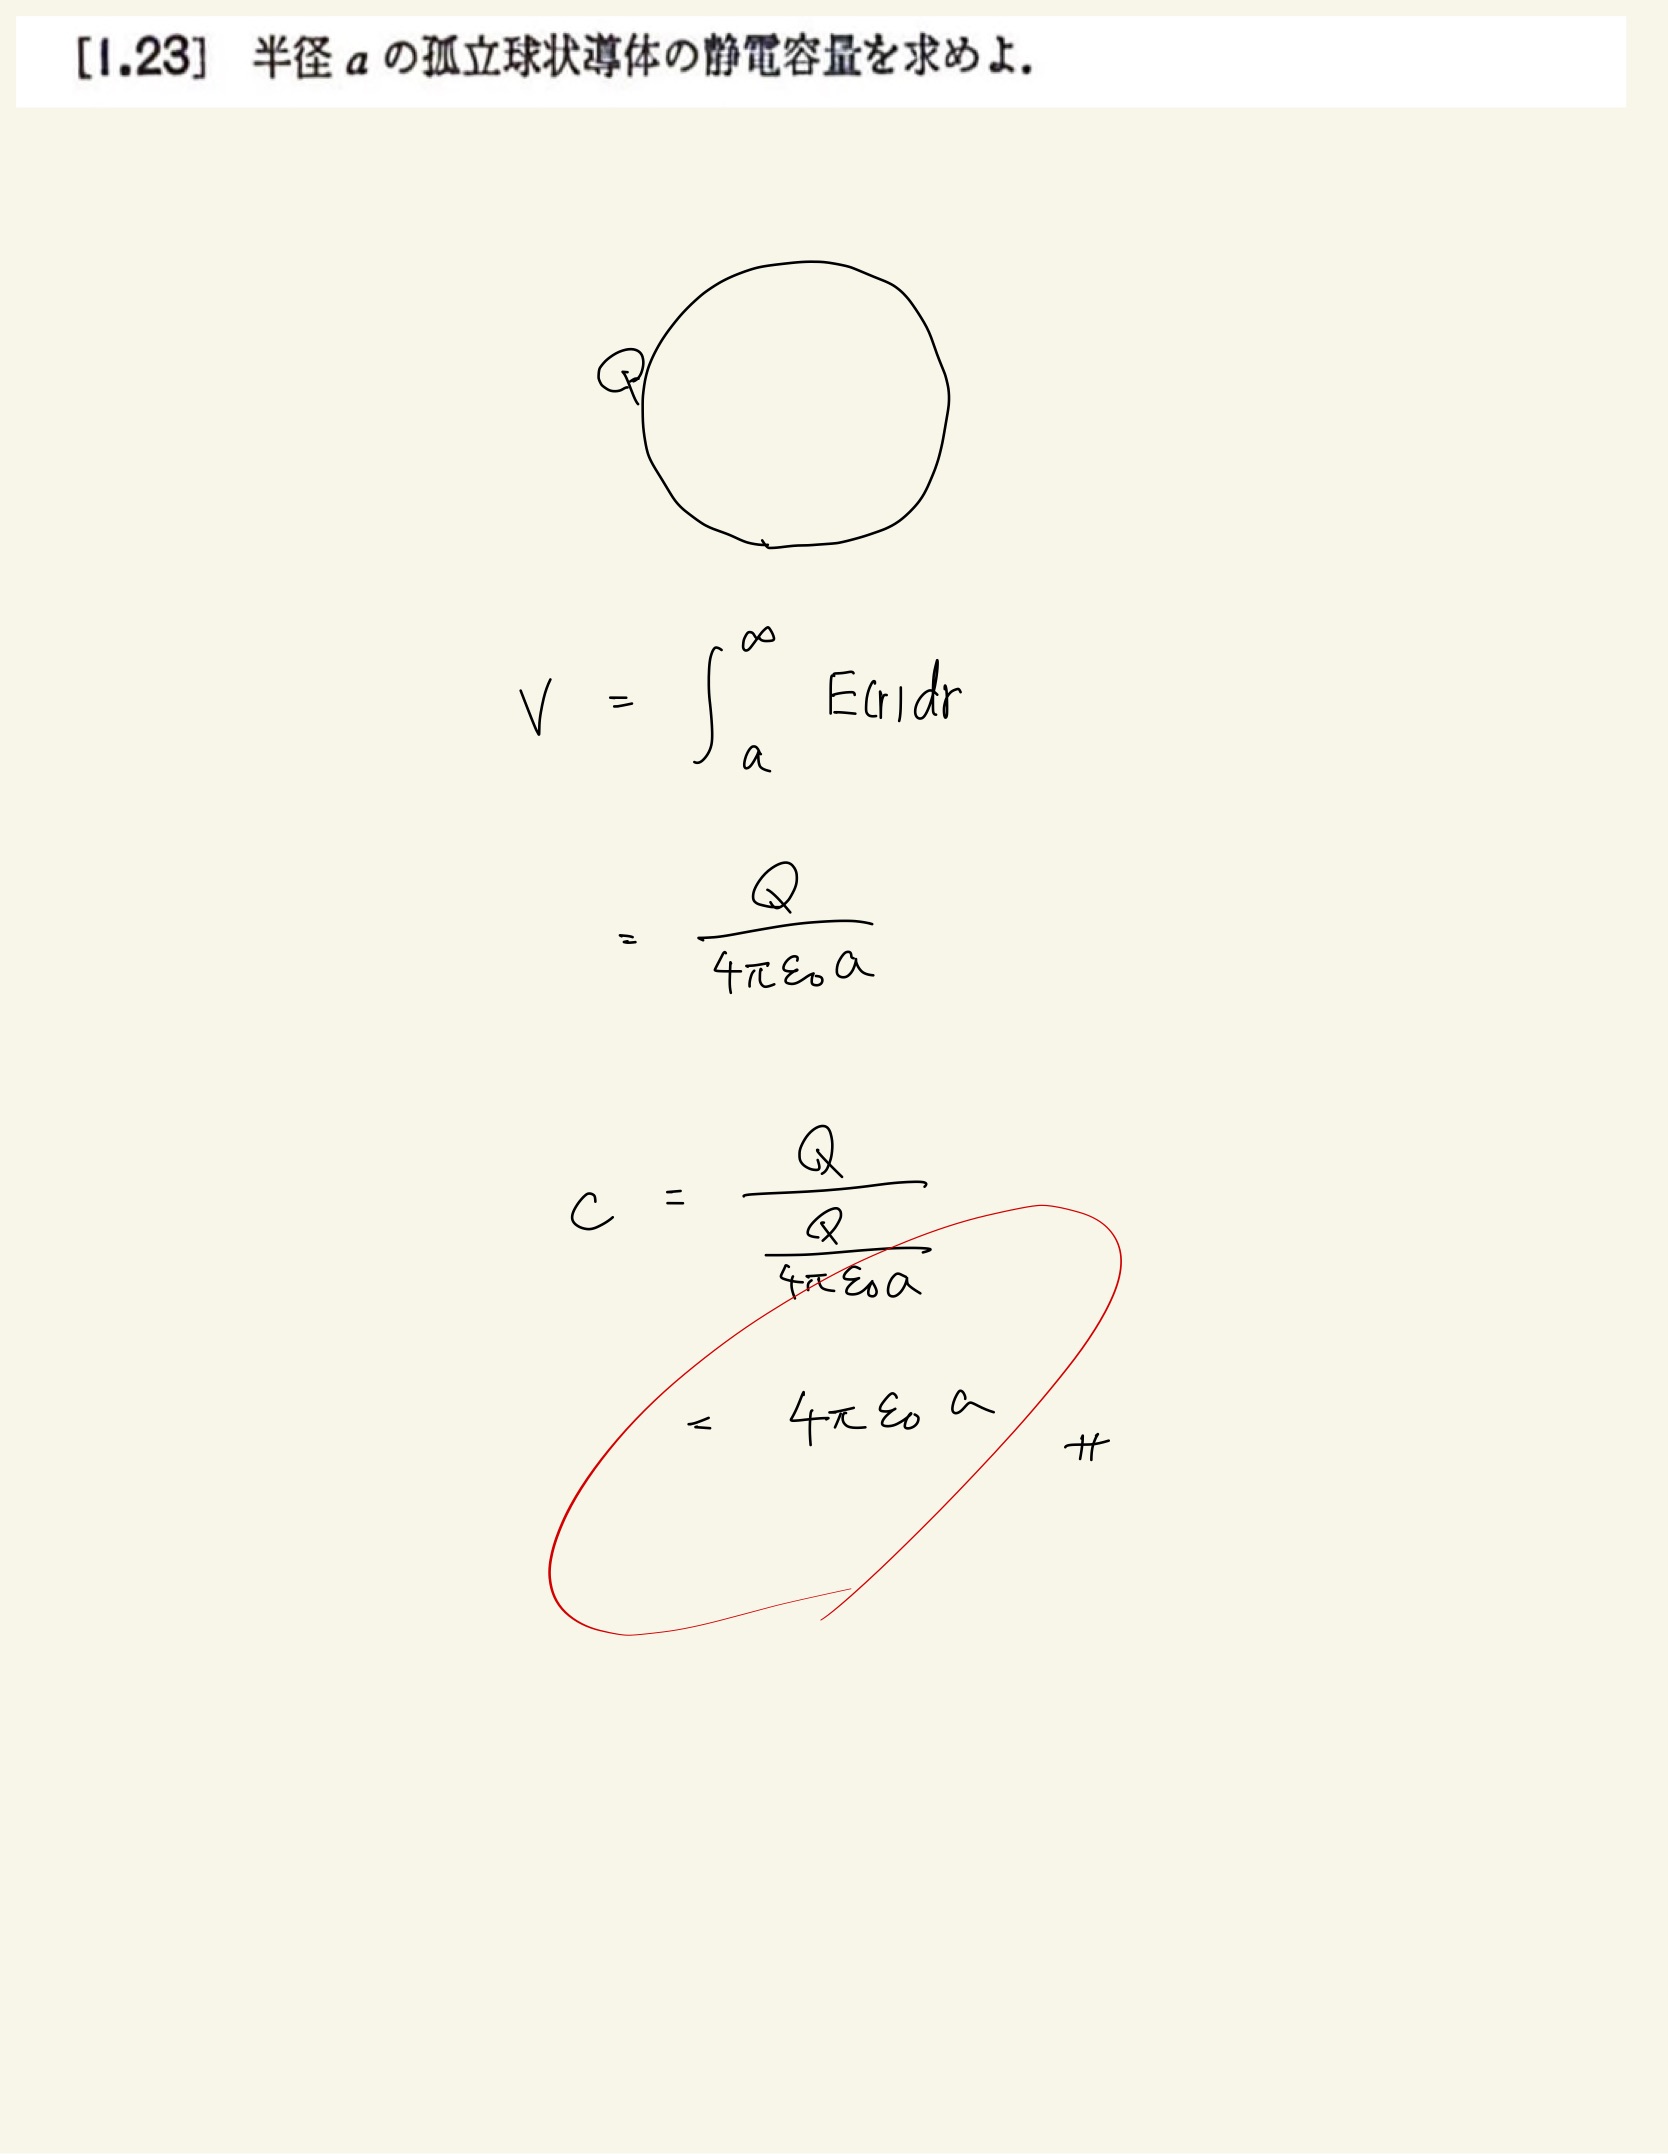 [1.23] 半径 a の孤立球状導体の静電容量を求めよ.
Q
V = ∫_a^∞ E(r)dr
= Q / 4πε₀a
C = Q / (Q / 4πε₀a)
= 4πε₀ a #